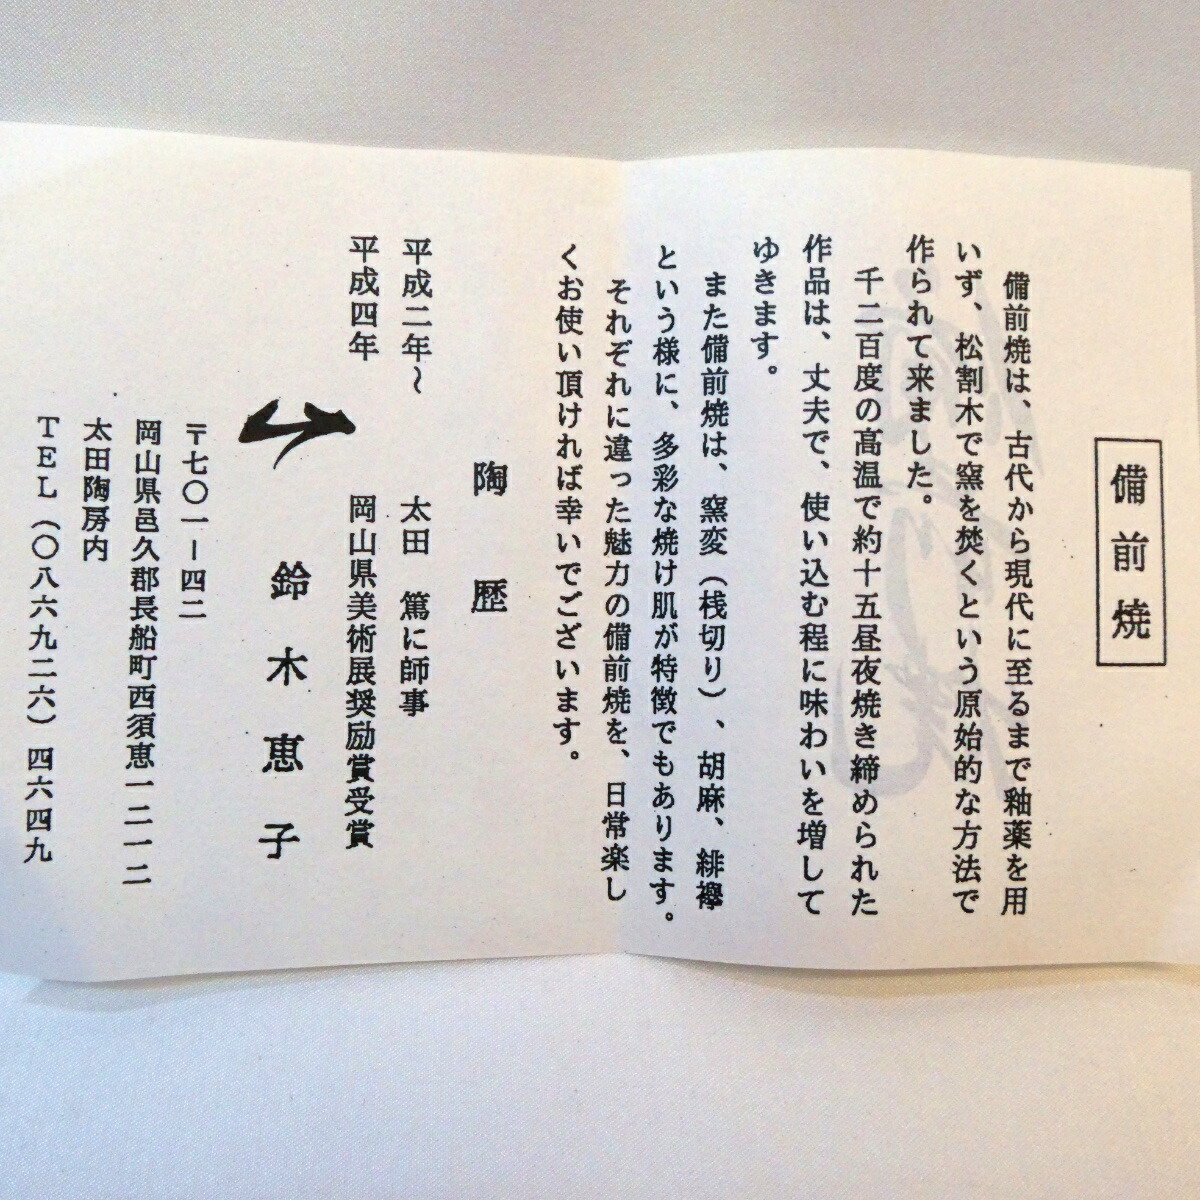 備前焼
備前焼は、古代から現代に至るまで釉薬を用
いず、松割木で窯を焚くという原始的な方法で
作られて来ました。
千二百度の高温で約十五昼夜焼き締められた
作品は、丈夫で、使い込む程に味わいを増して
ゆきます。
また備前焼は、窯変（桟切り）、胡麻、緋襷
という様に、多彩な焼け肌が特徴でもあります。
それぞれに違った魅力の備前焼を、日常楽し
くお使い頂ければ幸いでございます。
陶歴
平成二年～ 太田 篤に師事
平成四年 岡山県美術展奨励賞受賞
鈴木恵子
〒七〇一－四二
岡山県邑久郡長船町西須恵一二一二
太田陶房内
TEL（〇八六九二六）四六四九